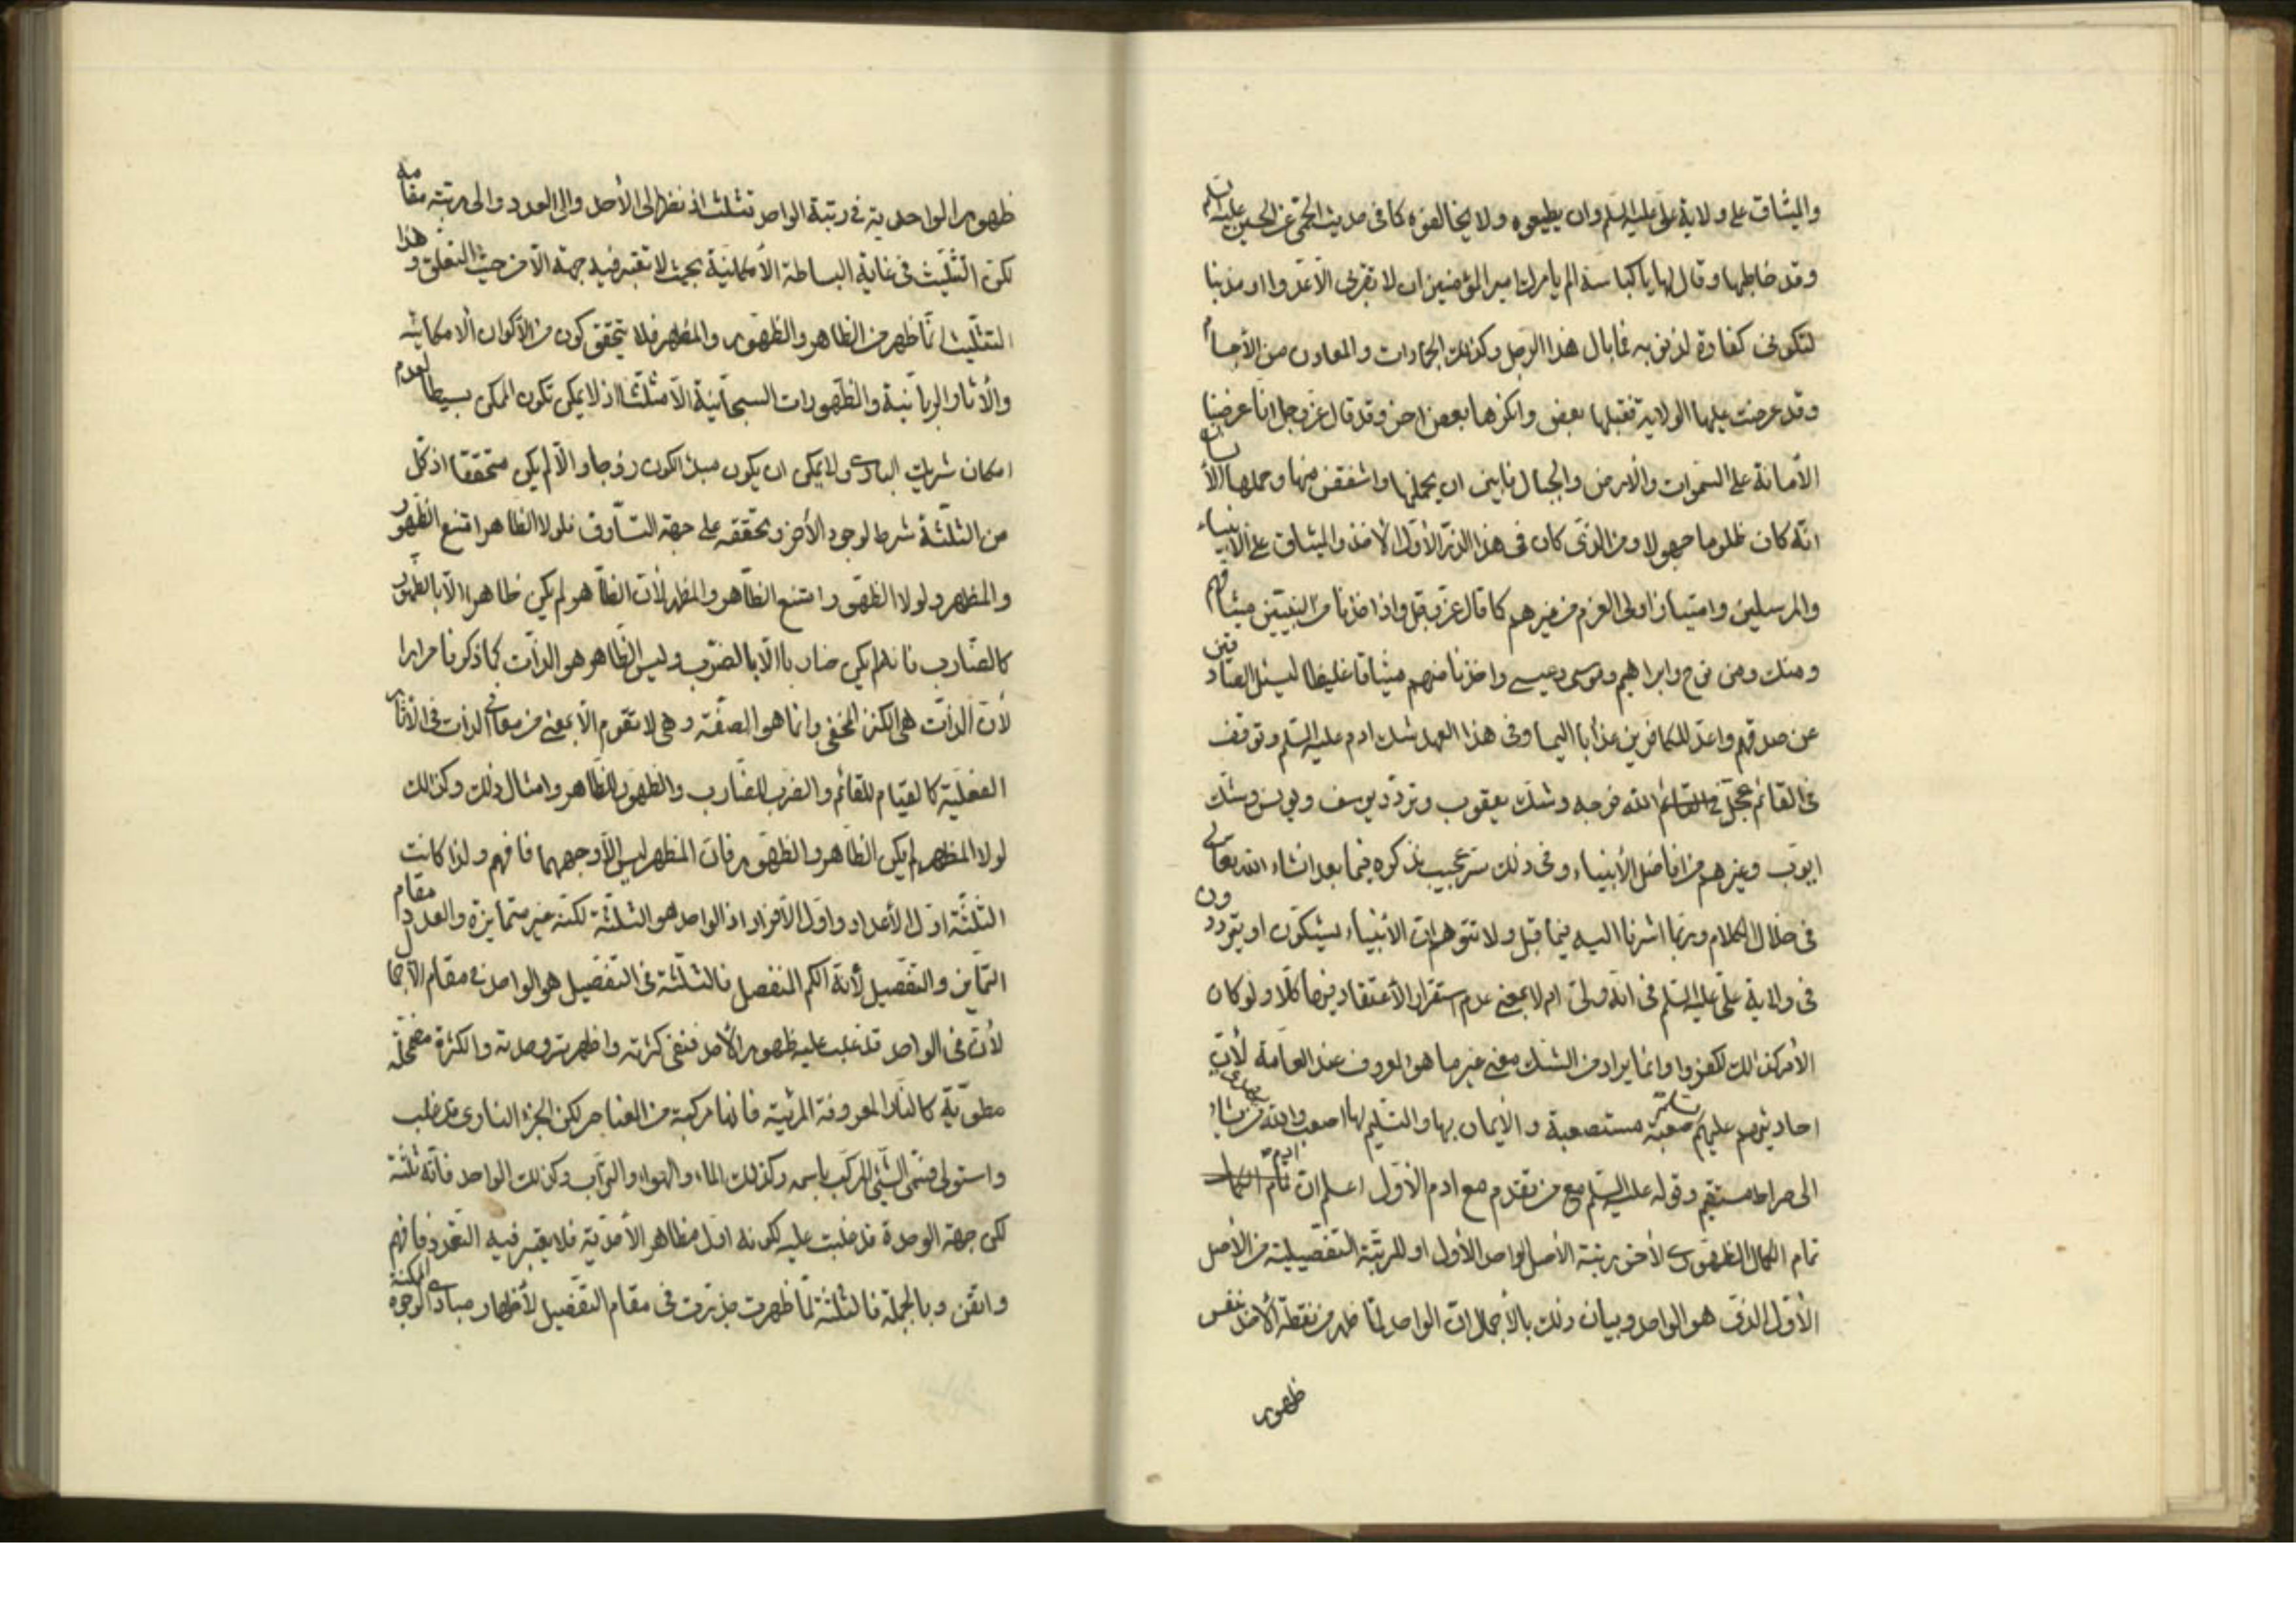 والميثاق على ولاية علي عليه السلم وان يطيعوه ولا يخالفوه كما في حديث الحمى عن الحسين عليه السلم
وقد خاطبها وقال لها يا كباسة الم يامرك امير المؤمنين ان لا تقربي الا عدوا او مذنبا
لتكوني كفارة لذنوبه فما بال هذا الرجل وكذلك الجمادات والمعادن من الأجسام
وقد عرضت عليها الولاية فقبلها بعض وانكرها بعض اخر وقد قال عز وجل انا عرضنا
الأمانة على السموات والأرض والجبال فابين ان يحملنها واشفقن منها وحملها الأنسان
انه كان ظلوما جهولا ومن الذي كان في هذا الذر الأول الأخذ والميثاق على الأنبياء
والمرسلين وامتياز اولي العزم من غيرهم كما قال عز وجل واذ اخذنا من النبيين ميثاقهم
ومنك ومن نوح وابراهيم وموسى وعيسى واخذنا منهم ميثاقا غليظا ليسئل الصادقين
عن صدقهم واعد للكافرين عذابا اليما وفي هذا العهد شك ادم عليه السلم وتوقف
في القائم عجل الله فرجه وشك يعقوب وتردد يوسف ويونس وشك
ايوب وغيرهم من افاضل الأنبياء وفي ذلك سر عجيب نذكره فيما بعد انشاء الله تعالى
في خلال الكلام وربما اشرنا اليه فيما قبل ولا تتوهم ان الأنبياء يشكون او يترددون
في ولاية علي عليه السلم في انه ولي ام لا بمعنى عدم استقرار الأعتقاد فيها كلا ولو كان
الأمر كذلك لكفروا وانما يراد من الشك معنى غير ما هو المعروف عند العامة لأن
احاديثهم عليهم السلم صعبة مستصعبة والأيمان بها والتسليم لها اصعب والله يهدي من يشاء
الى صراط مستقيم وقوله عليه السلم مع من تقدم مع ادم الأول اعلم ان ادم
تمام الكمال الظهوري لأخر رتبة الأصل الواحد الأول او للرتبة التفصيلية من الأصل
الأول الذي هو الواحد وبيان ذلك بالأجمال ان الواحد لما ظهر من نقطة الأحد بنفس
ظهور
ظهور الواحدية في رتبة الواحد تثلث اذ نظر الى الأحد والى العدد والى رتبة مقامه
لكن التثليث في غاية البساطة الأمكانية بحيث لا تعتبر فيه جهة الا من حيث التعلق وهذا
التثليث انما ظهر من الظاهر والظهور والمظهر فلا يتحقق كون من الأكوان الأمكانية
والأثار الربانية والظهورات السبحانية الا مثلثا اذ لا يمكن تكون الممكن بسيطا لعدم
امكان شريك الباري ولا يمكن ان يكون مبدء الكون زوجا والا لم يكن متحققا اذ كل
من الثلثة شرط لوجود الأخر وتحققه على جهة التساوق فلولا الظاهر امتنع الظهور
والمظهر ولولا الظهور امتنع الظاهر والمظهر لأن الظاهر لم يكن ظاهرا الا بالظهور
كالضارب فانه لم يكن ضاربا الا بالضرب وليس الظاهر هو الذات كما ذكرنا مرارا
لأن الذات هي الكنز المخفي وانما هو الصفة وهي لا تقوم الا بمعنى من معاني الذات في الأثار
الفعلية كالقيام للقائم والضرب للضارب والظهور للظاهر وامثال ذلك وكذلك
لولا المظهر لم يكن الظاهر والظهور فان المظهر ليس الا وجههما فافهم ولذا كانت
الثلثة اول الأعداد واول الأفراد اذ الواحد هو الثلثة لكنه غير متمايزة والعدد مقام
التمايز والتفصيل لأنه الكم المنفصل فالثلثة في التفصيل هو الواحد في مقام الأجمال
لأن في الواحد قد غلب عليه ظهور الأحد فنفى كثرته واظهر سر وحدته والكثرة مضمحلة
مطوية كالنار المعروفة المرئية فانها مركبة من العناصر لكن الجزء الناري قد غلب
واستولى فسمى الشيء المركب باسمه وكذلك الماء والهواء والتراب وكذلك الواحد فانه ثلثة
لكن جهة الوحدة قد غلبت عليه لكونه اول مظاهر الأحدية فلا يعتبر فيه التعدد فافهم
واتقن وبالجملة فالثلثة لما ظهرت برزت في مقام التفصيل لأظهار مبادي الوجوه الممكنة